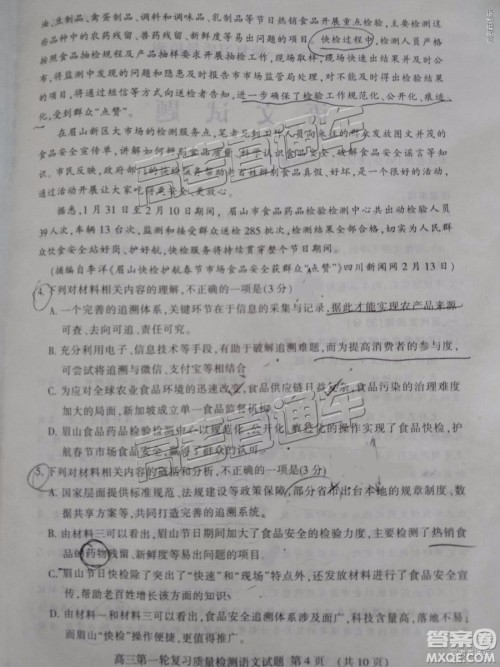 油、生制品、禽蛋制品、调料和调味品、乳制品等节日热销食品开展重点检验,主要检测这
些品种中的农药残留、兽药残留、新鲜度等易出问题的项目。快检过程中,检测人员严格
按照食品抽检规程及产品抽样要求开展工作,现场取样,现场快速出结果并及时公
布,将监测中发现的不合格产品及时上报市市场监管局处理,对不能及时出得检验结果
的项目,将通过短信等方式向送检者告知,进一步确保了检验工作规范化、公开化、痕迹
化,受到群众“点赞”。
在眉山新区大市场的检测服务点,笔者见到工作人员向来往的市民发放图文并茂的
食品安全宣传单,讲解如何辨别食品质量安全,普及快检知识,破解食品安全谣言等知
识。市民反映,政府部门的该项服务帮助老百姓更好地识别食品真假、好坏,是一个很好的,
通过活动开展让大家吃得更安全、更放心。
据悉,1月31日至2月10日期间,眉山市食品药品检验检测中心共出动检验人员
39人次,车辆13台次,切实为群众开展检验、接受送检285批次,检测结果全部合格,切实为人民群
众饮食安全站好岗、护好航,快检服务将持续贯穿整个节日期间。
(摘编自李洋《眉山快检护航春节市场食品安全获群众“点赞”》四川新闻网2月13日)
4.下列对材料相关内容的理解,不正确的一项是(3分)
A.一个完善的追溯体系,关键环节在于信息的采集与记录,据此才能实现农产品来源
可查、去向可追、责任可究。
B.充分利用电子、信息技术等手段,有助于破解追溯难题,而为提高消费者的参与度,
可尝试将追溯与微信、支付宝等相结合
C.为应对全球农业食品环境的迅速改变,食品供应链日益复杂,食品污染的治理难度
加大的局面,新加坡成立单一食品监督机构。
D.眉山食品药品检验检测中心以规范化、公开化、痕迹化的操作实现了食品快检,护
航春节市场食品安全。
5.下列对材料相关内容的概括和分析,不正确的一项是(3分)
A.国家层面提供标准规范、法规建设等政策保障,部分省市出台本地的规章制度、数
据共享方案等,共同打造完善的追溯系统。
B.由材料三可以看出,眉山节日期间加大了食品安全的检验力度,主要检测了热销食
品的药物残留、新鲜度等易出问题的项目。
C.眉山节日快检除了突出了“快速”和“现场”特点外,还发放食品安全宣传
单,帮助老百姓了解更多的知识。
D.由材料一和材料三可以看出,食品安全追溯体系涉及面广,科技含量高,落地难,
而眉山“快检”操作方便,更适合推广。
高三第一轮复习质量检测语文试题 第4页 (共10页)
高考直通车
高考直通车
答案圈